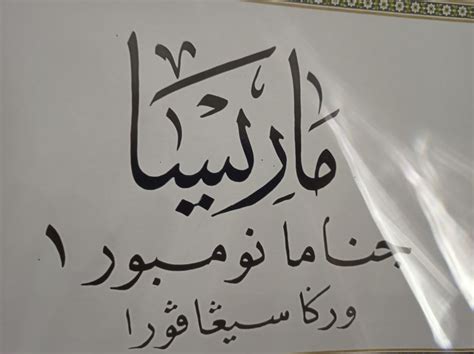 مَارِيسَا
جناما نومبور ١
ورݢا سيڠاڤورا